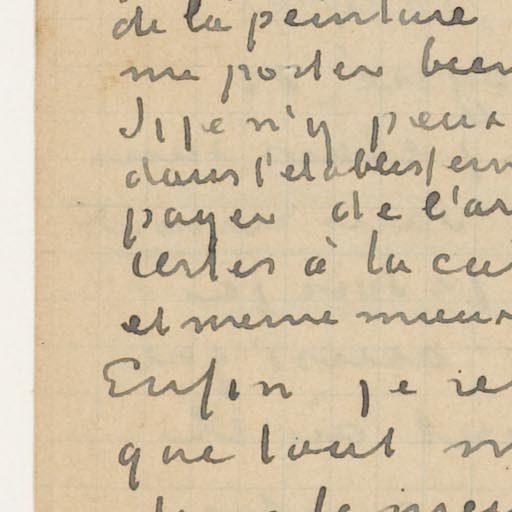 de la peinture
me porter bien
Si je n'y peux
dans l'etablissem
payer de l'ar
certes à la
et meme mieux
Enfin je re
que tout m